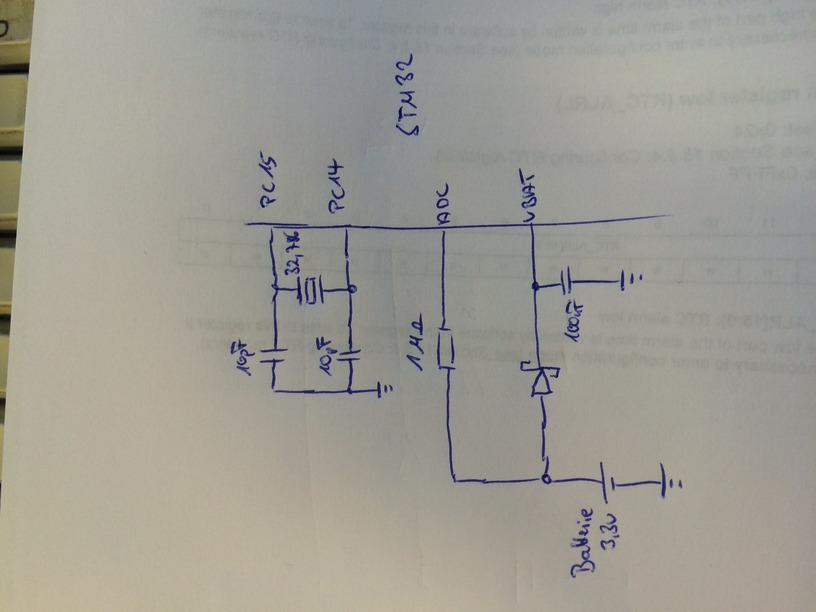 STM32
PC15
PC14
ADC
VBAT
32,7k
10pF
10pF
1MΩ
100nF
Batterie
3,3V